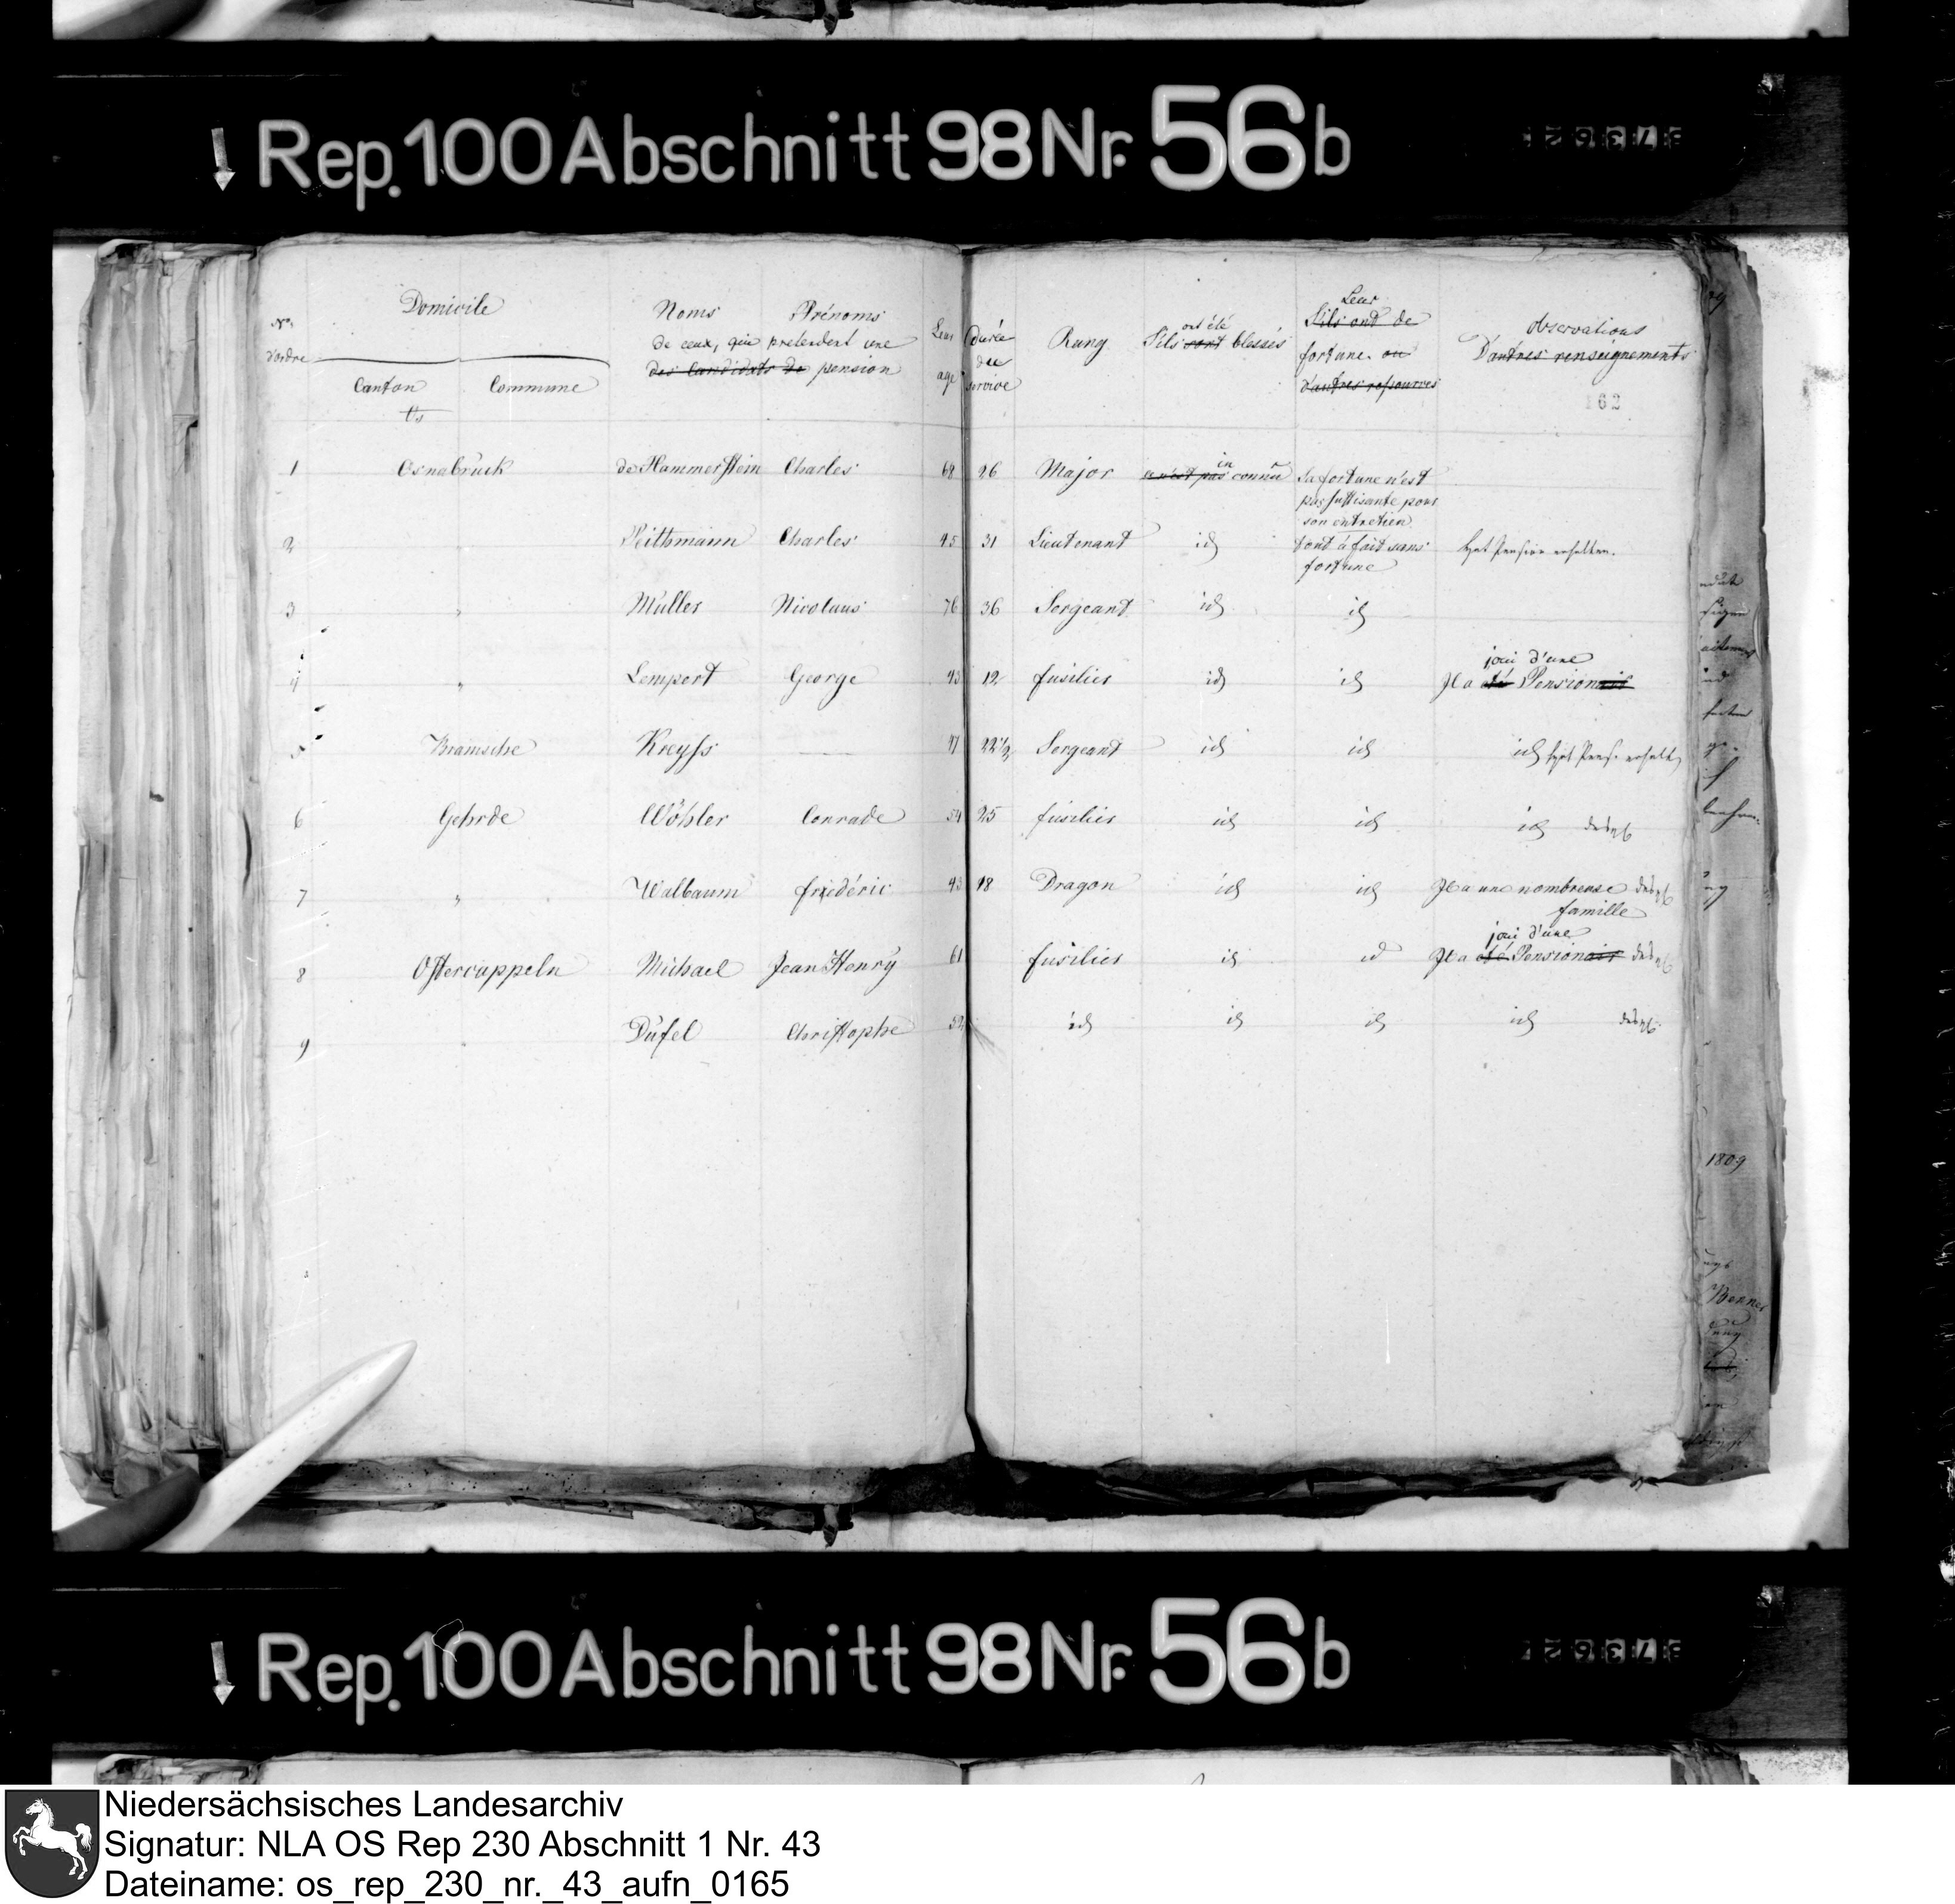 Rep. 100 Abschnitt 98 Nr. 56b
No. d'ordre
Domicile
Canton Commune
Noms Prénoms
de ceux, qui pretendent une
des Candidats de pension
Leur age
Durée du service
Rang
ont été
S'ils sont blessés
Leur
S'ils ont de
fortune ou
d'autres ressources
Observations
D'autres renseignements
162
1 Osnabrück de Hammerstein Charles 68 26 Major in n'est pas connu Sa fortune n'est
pas suffisante pour
son entretien
2 " Veithmann Charles 45 31 Lieutenant id tout à fait sans hat Pension erhalten.
fortune
3 " Müller Nicolaus 76 36 Sergeant id id
4 " Lemport George 43 12 fusilier id id joui d'une
Il a été Pensionair
5 Bramsche Kreyss — 47 22½ Sergeant id id id hat Pens. erhalt
6 Gehrde Wöhler Conrade 54 25 fusilier id id id
7 " Walbaum friedéric 43 18 Dragon id id Il a une nombreuse
famille
8 Ostercappeln Michael Jean Henry 61 fusilier id id joui d'une
Il a été Pensionair
9 Düfel Christophe 52 id id id id
1809
Rep. 100 Abschnitt 98 Nr. 56b
Niedersächsisches Landesarchiv
Signatur: NLA OS Rep 230 Abschnitt 1 Nr. 43
Dateiname: os_rep_230_nr._43_aufn_0165